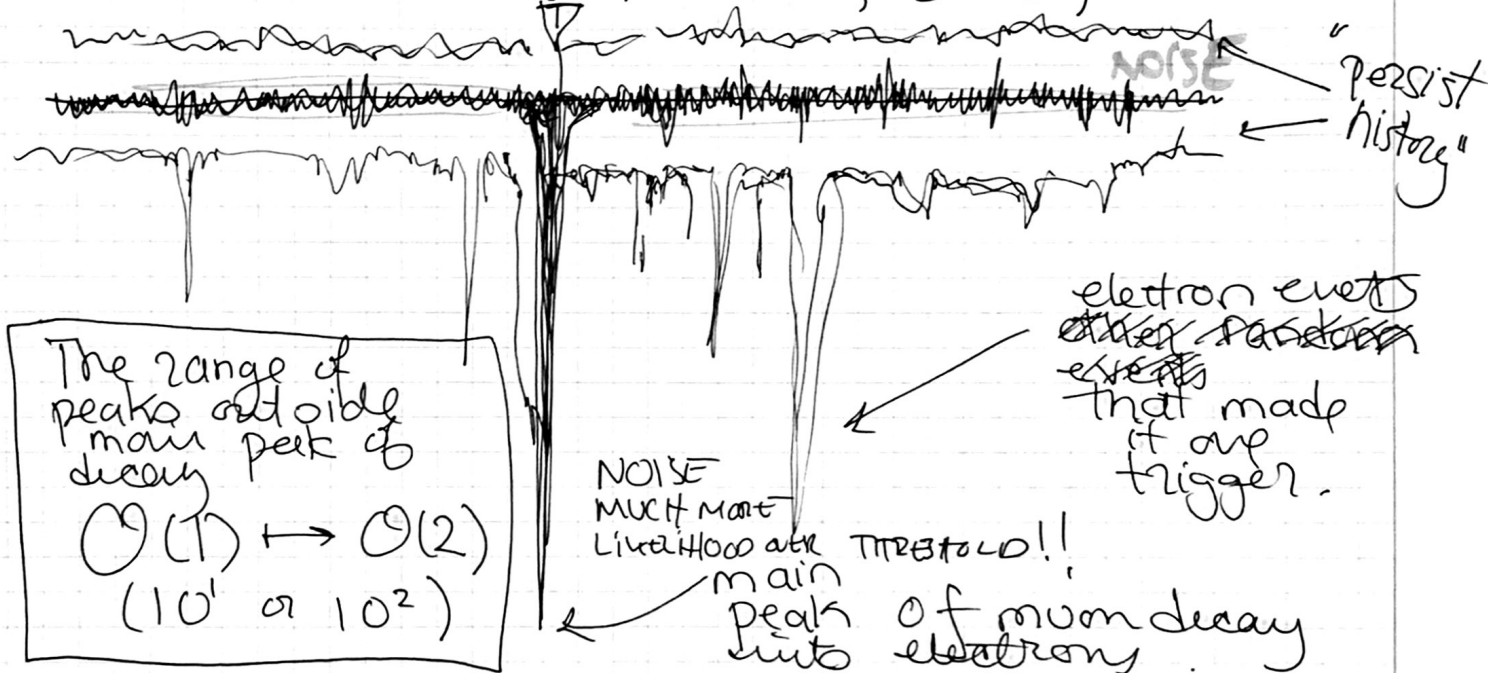 T
NOISE
"persist
history"
electron evets
that made
it ove
trigger.
The range of
peaks outside
main peak of
decay
O(1) ↦ O(2)
(10¹ or 10²)
NOISE
MUCH MORE
LIKELIHOOD OVER THRESHOLD!!
main
peak of muon decay
into electrons.